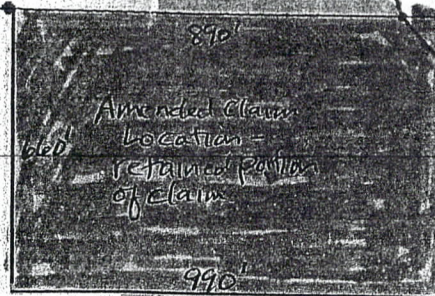 890'
Amended Claim
Location -
660'
retained portion
of claim
990'